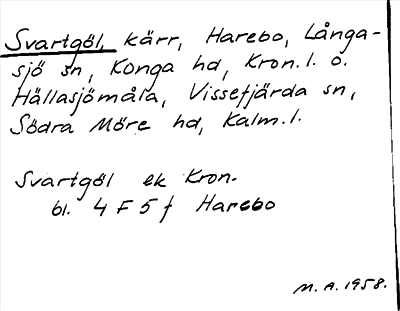 Svartgöl, kärr, Harebo, Långa-
sjö sn, Konga hd, Kron. l. o.
Hällasjömåla, Vissefjärda sn,
Södra Möre hd, Kalm. l.
Svartgöl ek Kron.
bl. 4 F 5 f Harebo
M. A. 1958.